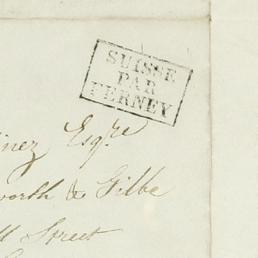 SUISSE
PAR
FERNEY
inez Esqre
worth & Gilbe
ll Street